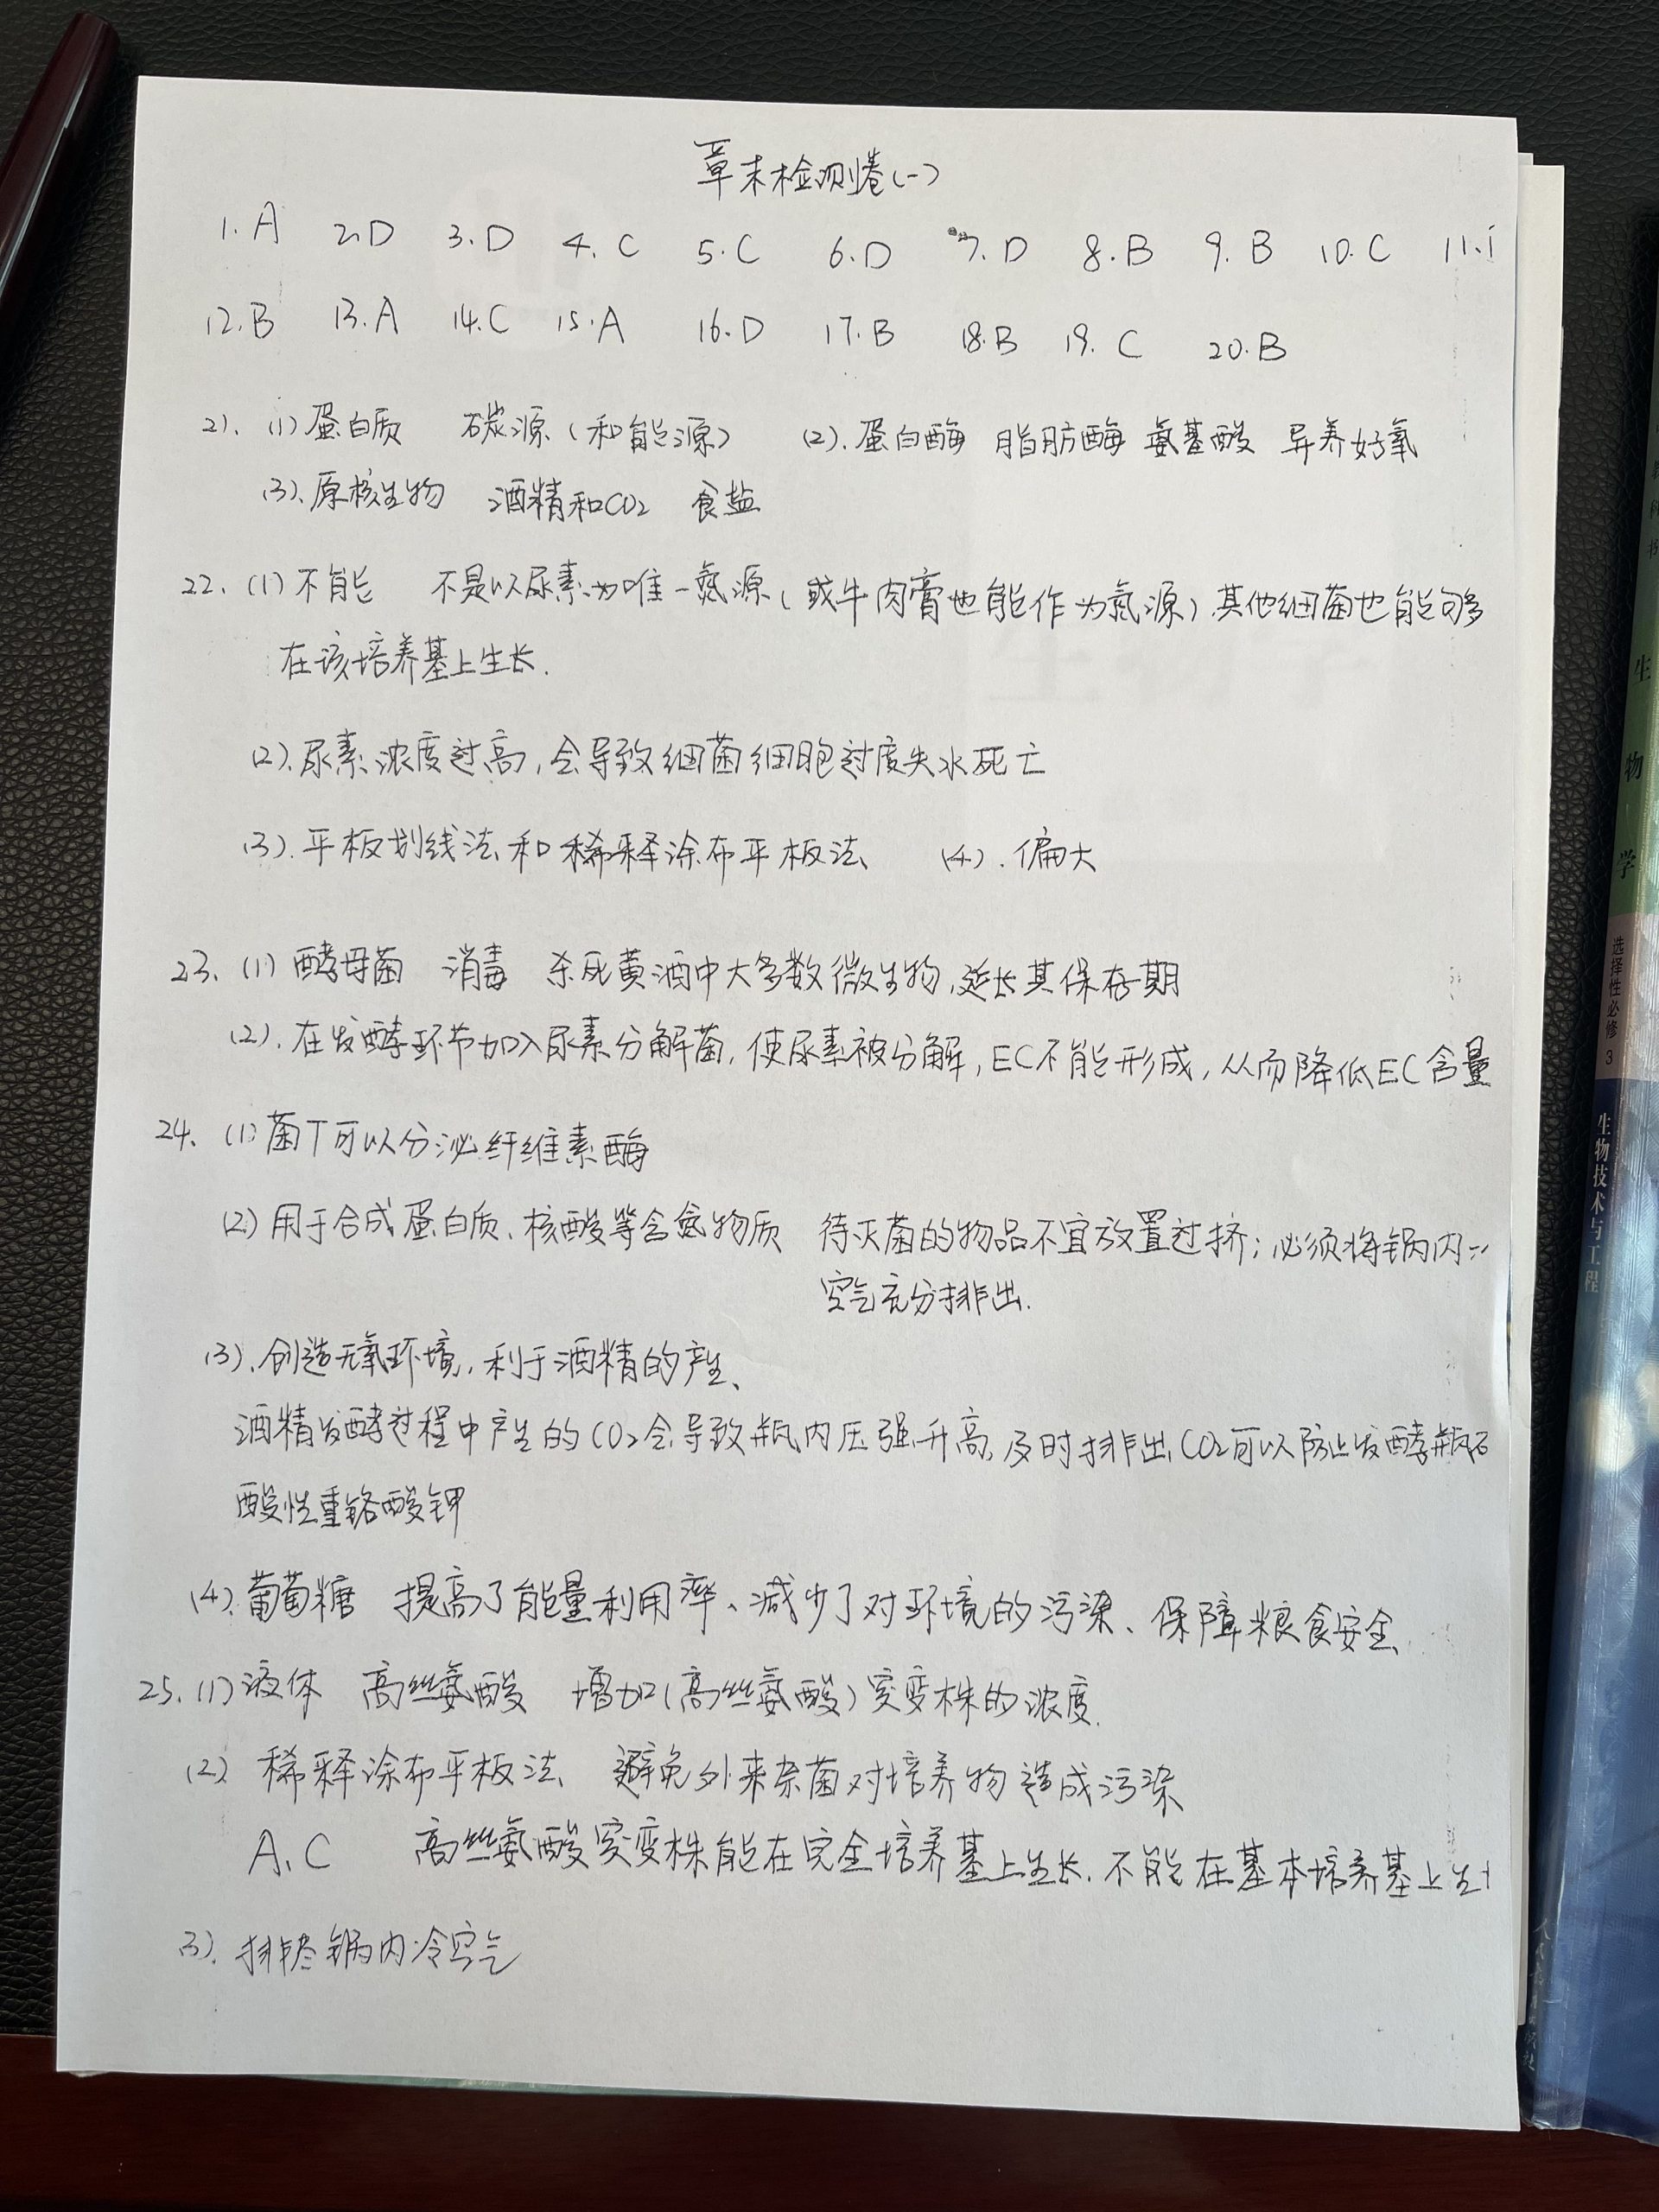 章末检测卷(一)
1.A 2.D 3.D 4.C 5.C 6.D 7.D 8.B 9.B 10.C 11.
12.B 13.A 14.C 15.A 16.D 17.B 18.B 19.C 20.B
21. (1)蛋白质 碳源(和能源) (2).蛋白酶 脂肪酶 氨基酸 异养好氧
(3).原核生物 酒精和CO₂ 食盐
22. (1)不能 不是以尿素为唯一氮源(或牛肉膏也能作为氮源)其他细菌也能够
在该培养基上生长.
(2).尿素浓度过高,会导致细菌细胞过度失水死亡
(3).平板划线法和稀释涂布平板法 (4).偏大
23. (1)酵母菌 消毒 杀死黄酒中大多数微生物,延长其保存期
(2).在发酵环节加入尿素分解菌,使尿素被分解,EC不能形成,从而降低EC含量
24、(1)菌T可以分泌纤维素酶
(2)用于合成蛋白质、核酸等含氮物质 待灭菌的物品不宜放置过挤;必须将锅内
空气充分排出.
(3).创造无氧环境,利于酒精的产生
酒精发酵过程中产生的CO₂会导致瓶内压强升高,及时排出CO₂可以防止发酵瓶
酸性重铬酸钾
(4).葡萄糖 提高了能量利用率、减少了对环境的污染、保障粮食安全
25.(1)液体 高丝氨酸 增加(高丝氨酸)突变株的浓度.
(2) 稀释涂布平板法 避免外来杂菌对培养物造成污染
A、C 高丝氨酸突变株能在完全培养基上生长.不能在基本培养基上生
3). 排尽锅内冷空气
生物学
选择性必修3
生物技术与工程